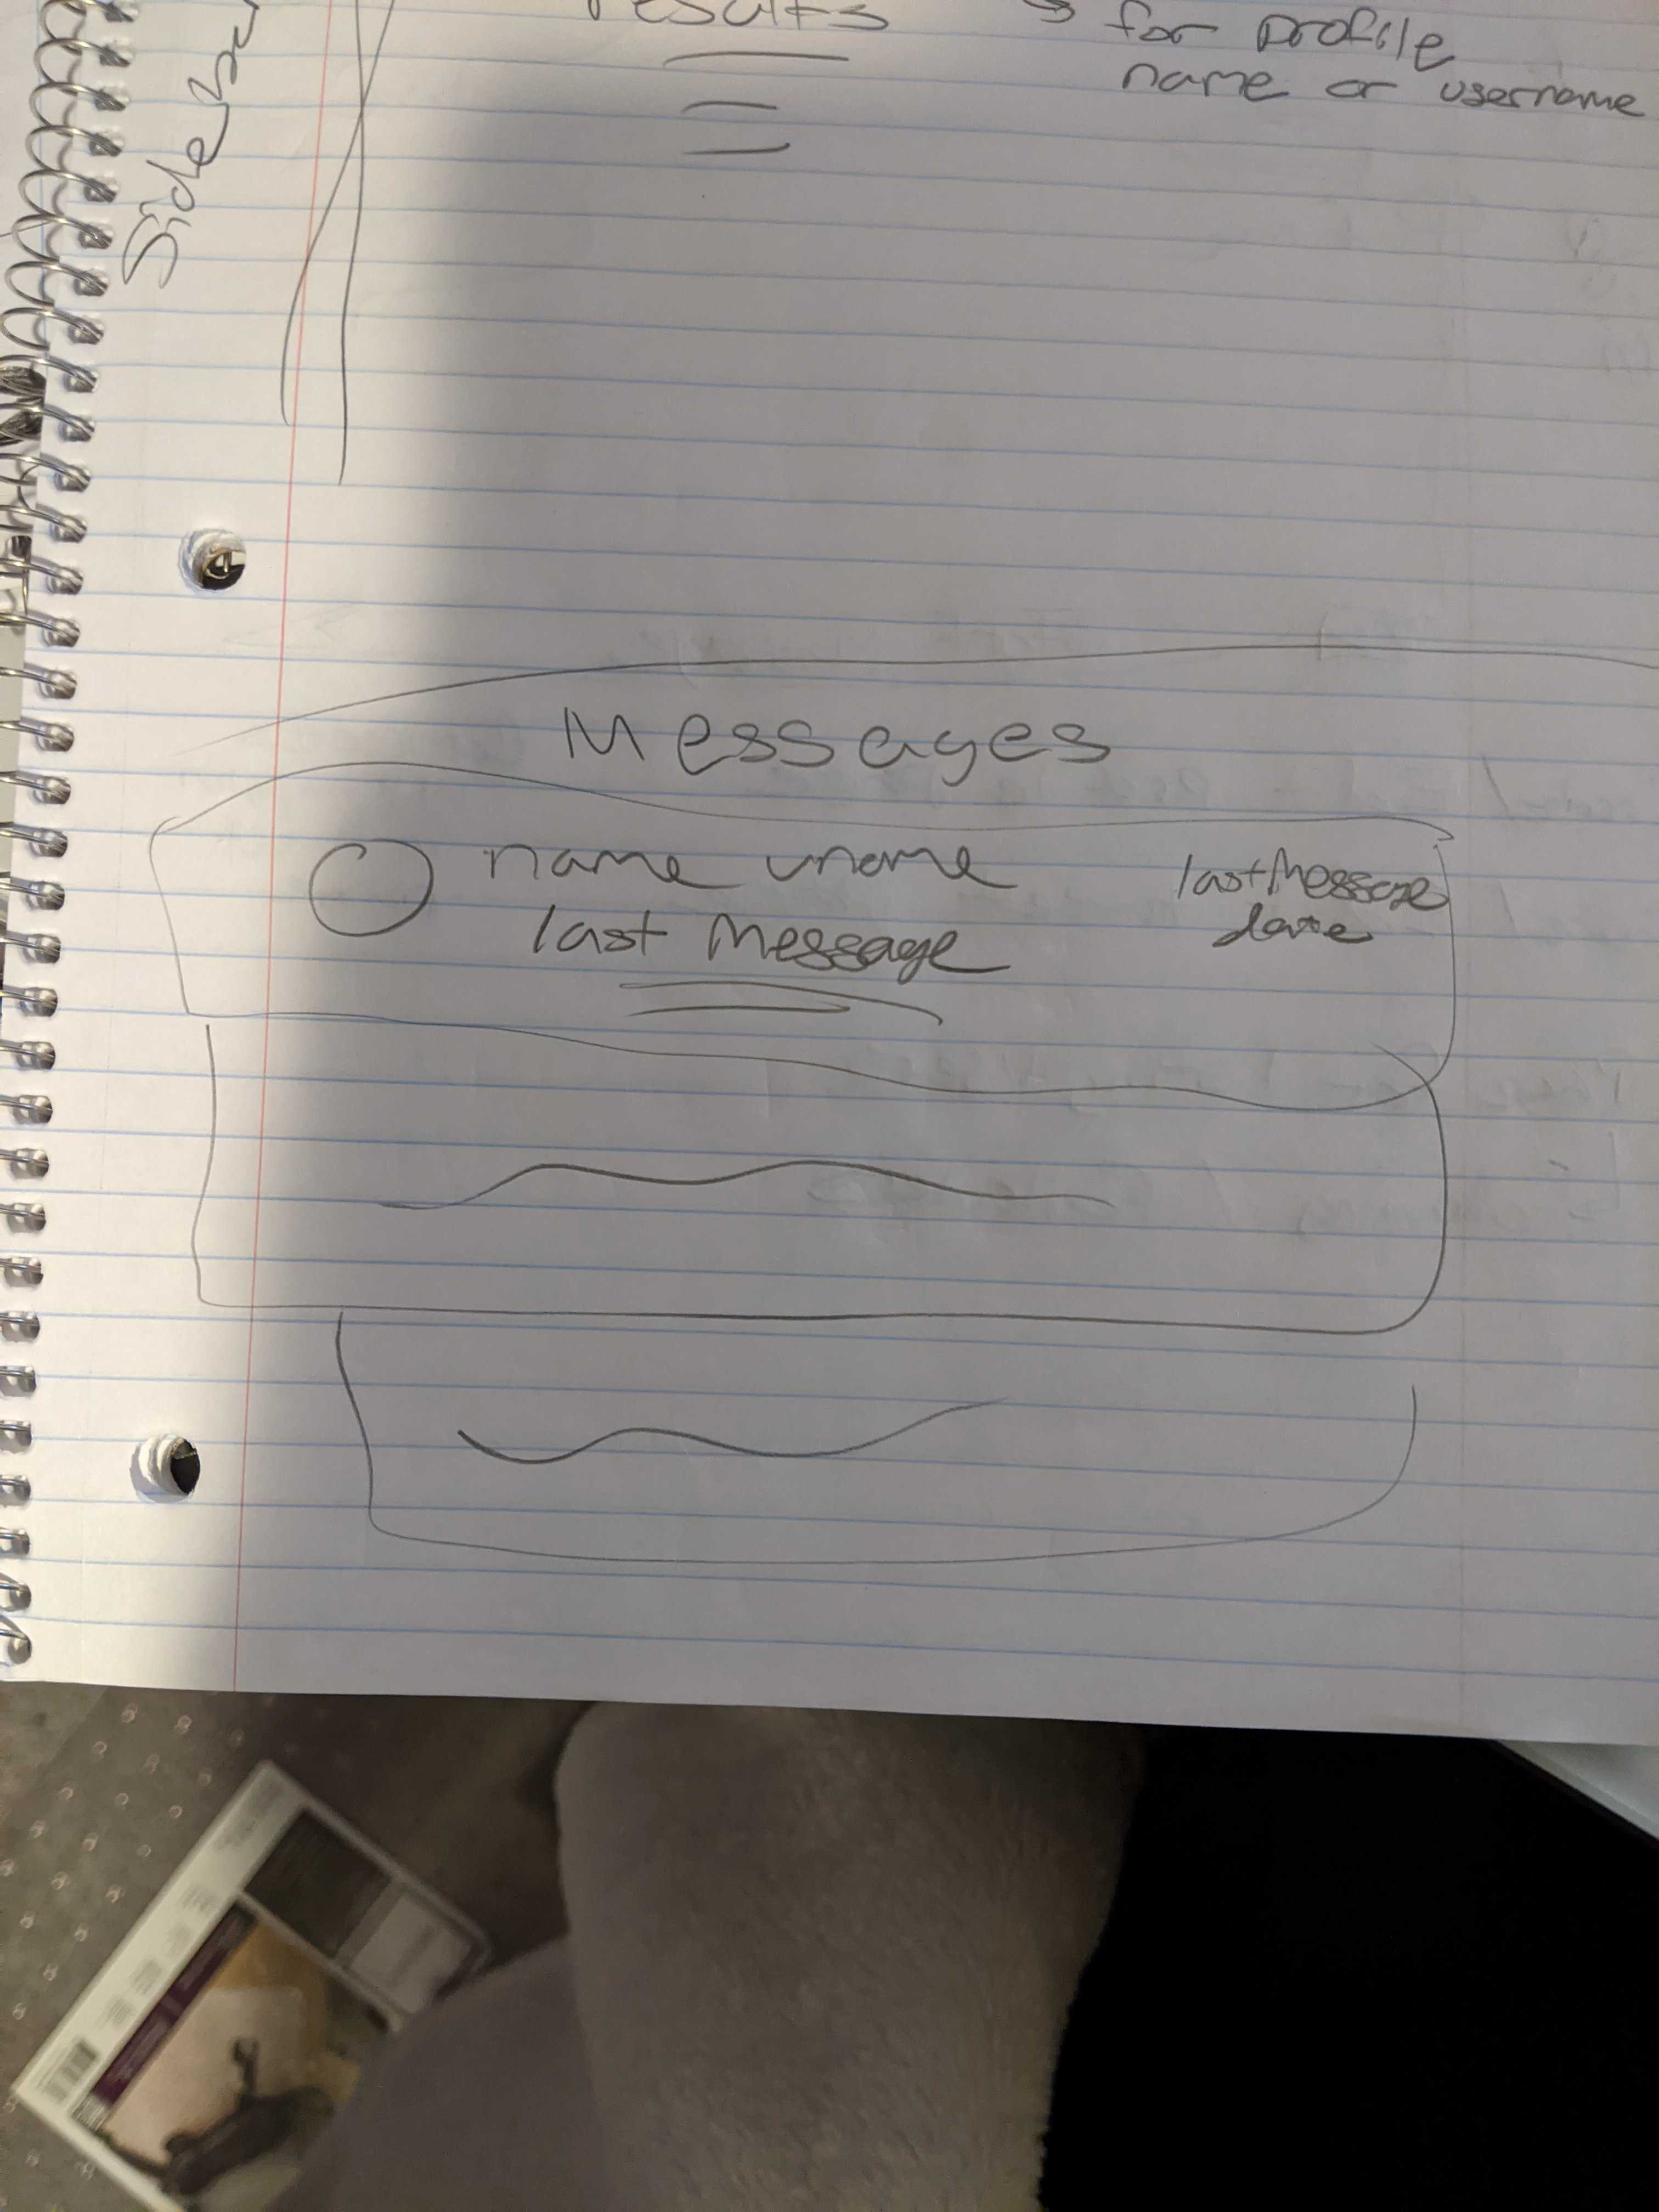 results
for profile
name or username
Sideba
Messages
name uname
last Message
last Message
date